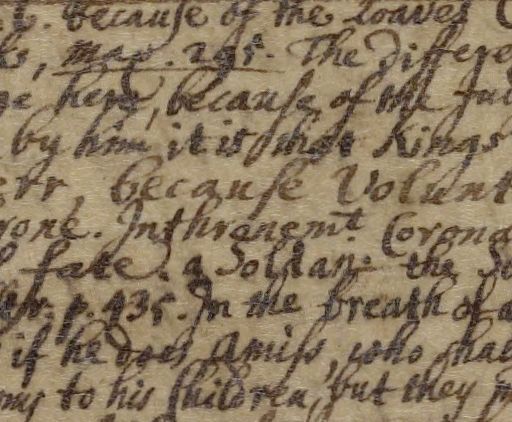 because of the loaves
The differe
here, because of the
by him it is that Kings
because Volunt
rone. Inthronemt. Corona
fate. a Soldan. the
p. 435. In the breath of a
if he does amiss, who shal
to his children, but they